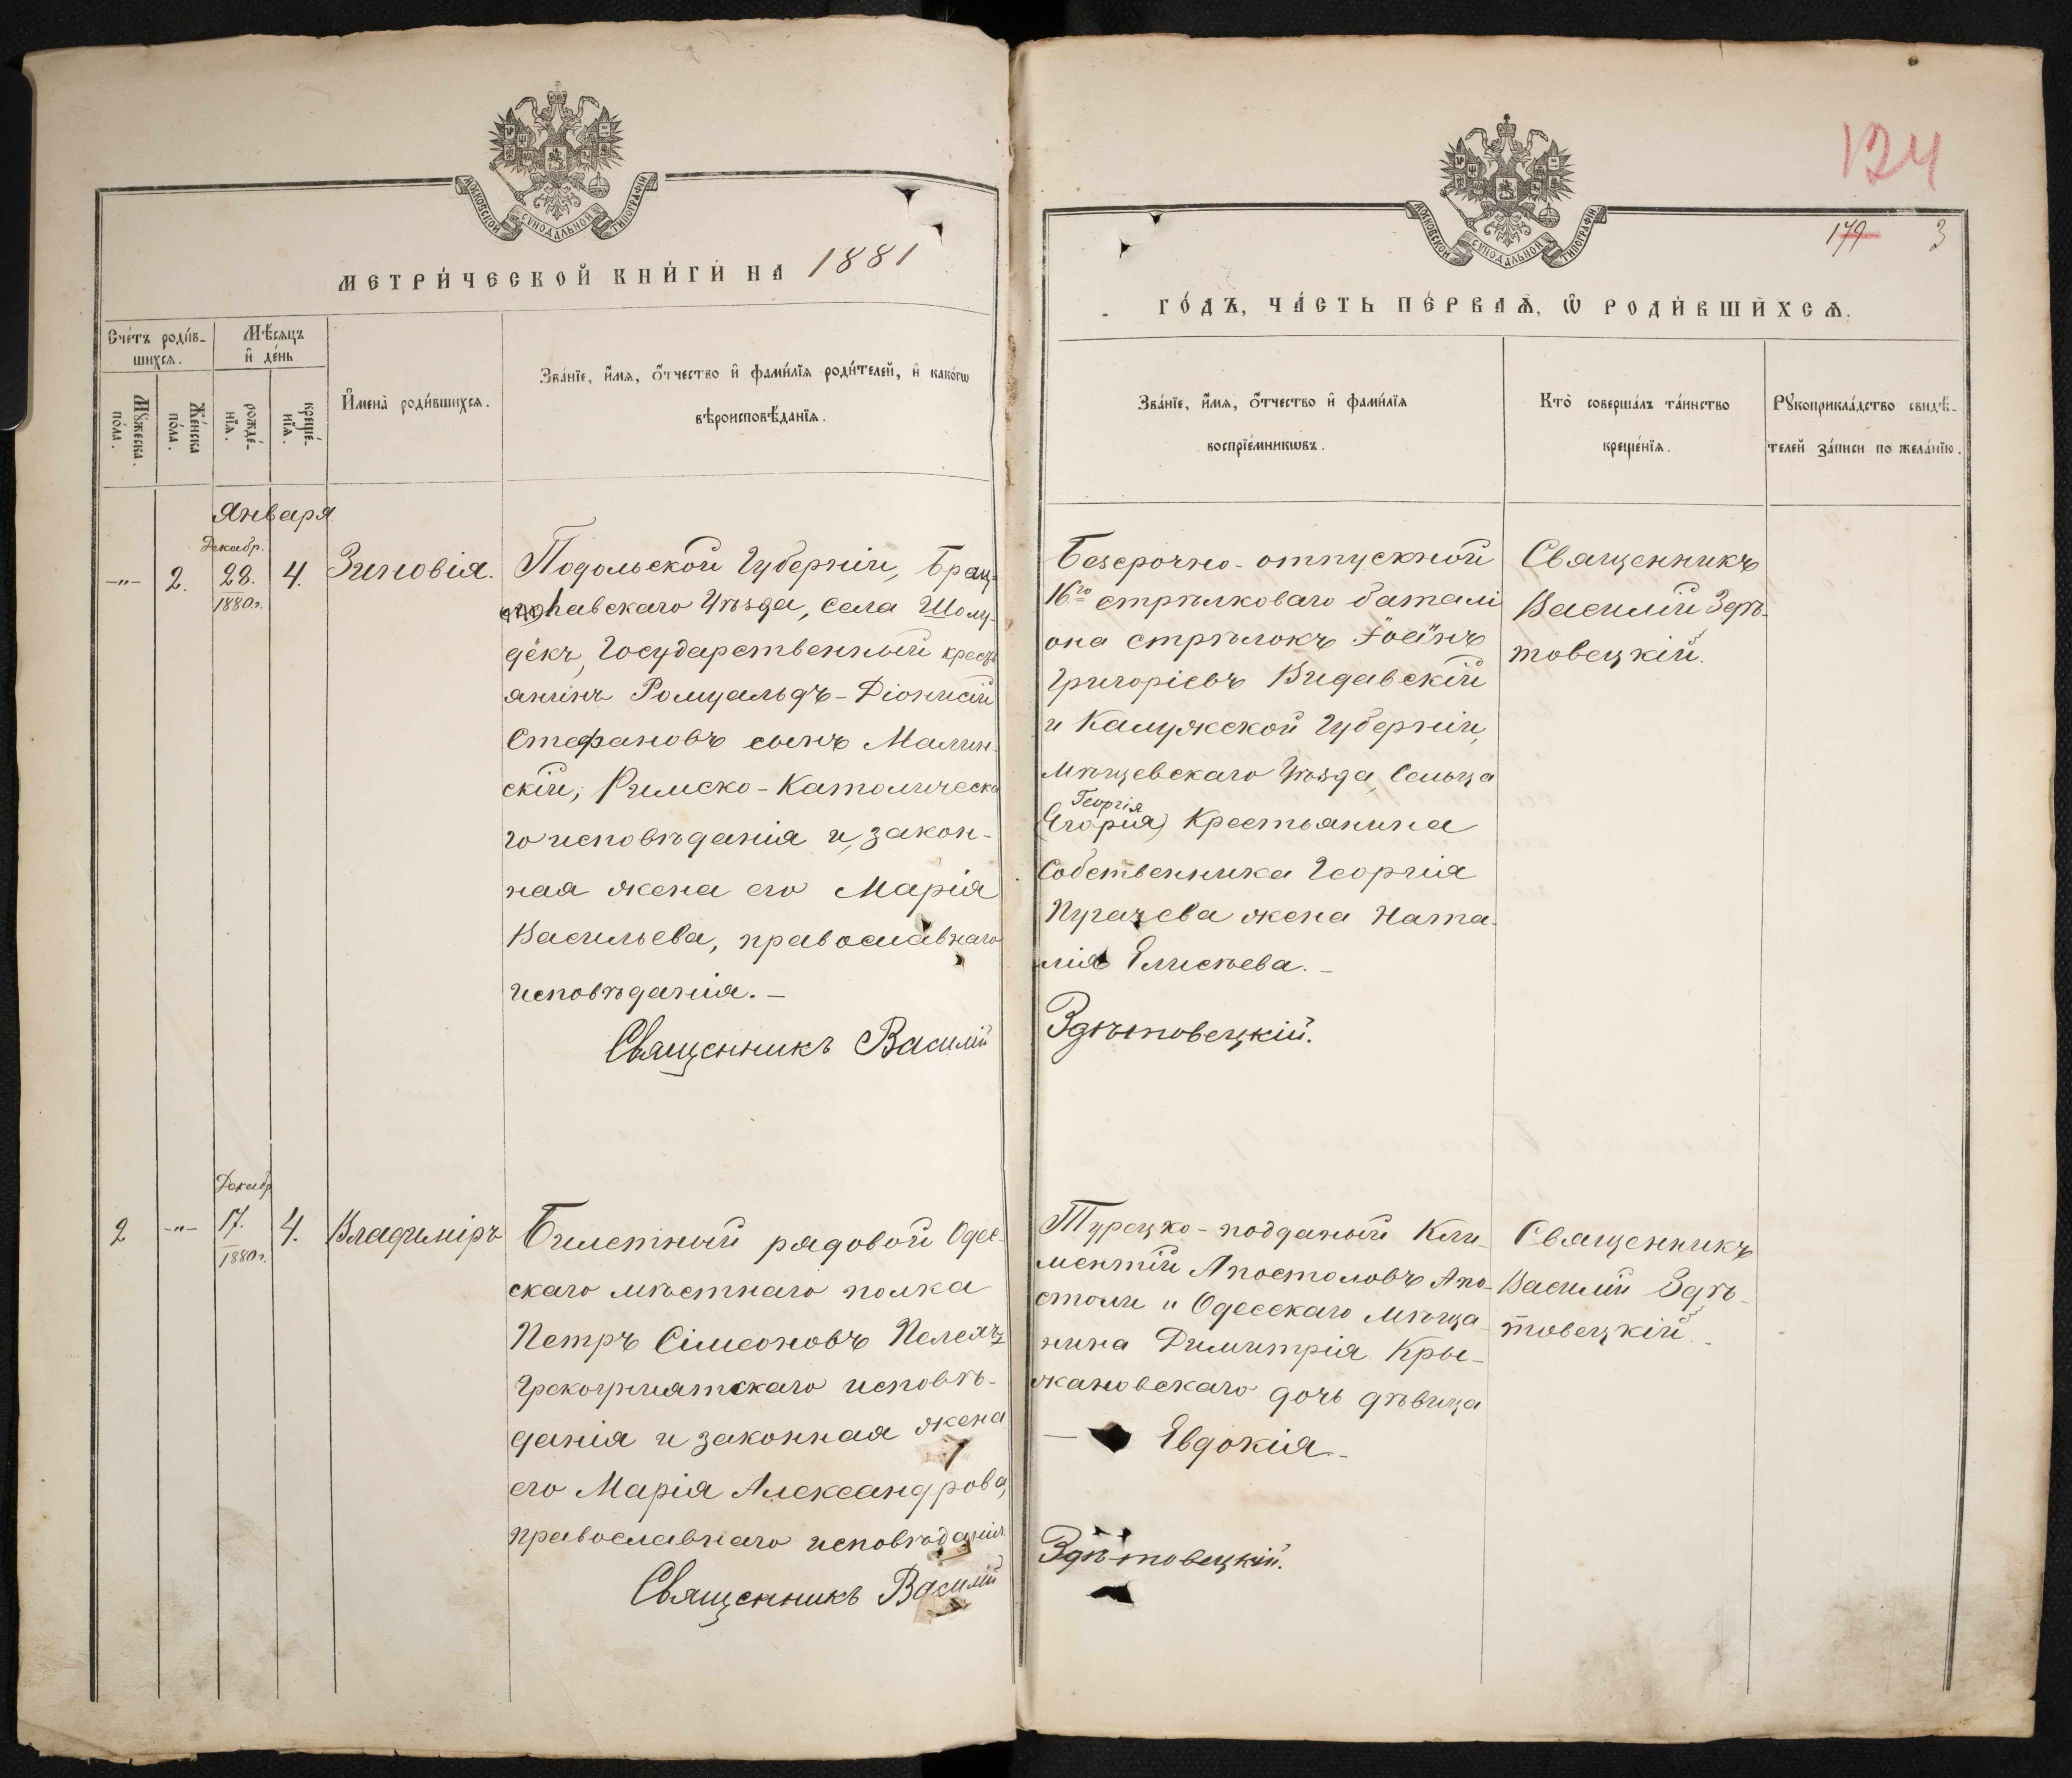 124
179 3
МОСКОВСКОЙ СѴНОДАЛЬНОЙ ТИПОГРАФІИ
МОСКОВСКОЙ СѴНОДАЛЬНОЙ ТИПОГРАФІИ
МЕТРИ́ЧЕСКОЙ КНИ́ГИ НА 1881
ГО́ДЪ, ЧА́СТЬ ПЕ́РВАѦ, Ѡ҆ РОДИ́ВШИХСѦ.
Сче́тъ роди́в-
шихсѧ.
Мѣ́сѧцъ
и҆ де́нь
Мꙋ́жеска
по́ла.
Же́нска
по́ла.
рожде́-
нїѧ.
креще́-
нїѧ.
И҆мена̀ роди́вшихсѧ.
Зва́нїе, и҆́мѧ, ѻ҆́тчество и҆ фами́лїѧ роди́телей, и҆ како́гѡ
вѣроисповѣ́данїѧ.
Зва́нїе, и҆́мѧ, ѻ҆́тчество и҆ фами́лїѧ
воспрїе́мникѡвъ.
Кто̀ соверша́лъ та́инство
креще́нїѧ.
Рꙋкоприкла́дство свидѣ́-
телей за́писи по жела́нїю.
Января
Декабр.
-"- 2. 28. 4. Зиновія.
1880 г.
Подольской Губерніи, Брац-
лавскаго Уѣзда, села Шолу-
дёкъ, Государственный кресть
янинъ Ромуальдъ-Діонисій
Стефановъ сынъ Малин-
скій, Римско-Католическа
го исповѣданія и, закон-
ная жена его Марія
Васильева, православнаго
исповѣданія. –
Священникъ Василій
Безсрочно-отпускной
16го стрѣлковаго баталі
она стрѣлокъ Іоаннъ
Григоріевъ Видавскій
и Калужской Губерніи,
Мѣщевскаго Уѣзда, Сельца
Георгія
(Егорія) Крестьянина
Собственника Георгія
Пугачева жена Ната-
лія Елисѣева. –
Здѣтовецкій.
Священникъ
Василій Здѣ-
товецкій.
Декабр
2 -"- 17. 4. Владиміръ
1880 г.
Билетный рядовой Одес-
скаго мѣстнаго полка
Петръ Сімеоновъ
Грекоуніятскаго исповѣ-
данія и законная жена
его Марія Александрова,
православнаго исповѣданія
Священникъ Василій
Турецко-подданый Кли-
ментій Апостоловъ Апо-
столи и Одесскаго Мѣща-
нина Димитрія Кры-
жановскаго дочь дѣвица
– Евдокія –
Здѣтовецкій.
Священникъ
Василій Здѣ-
товецкій. –